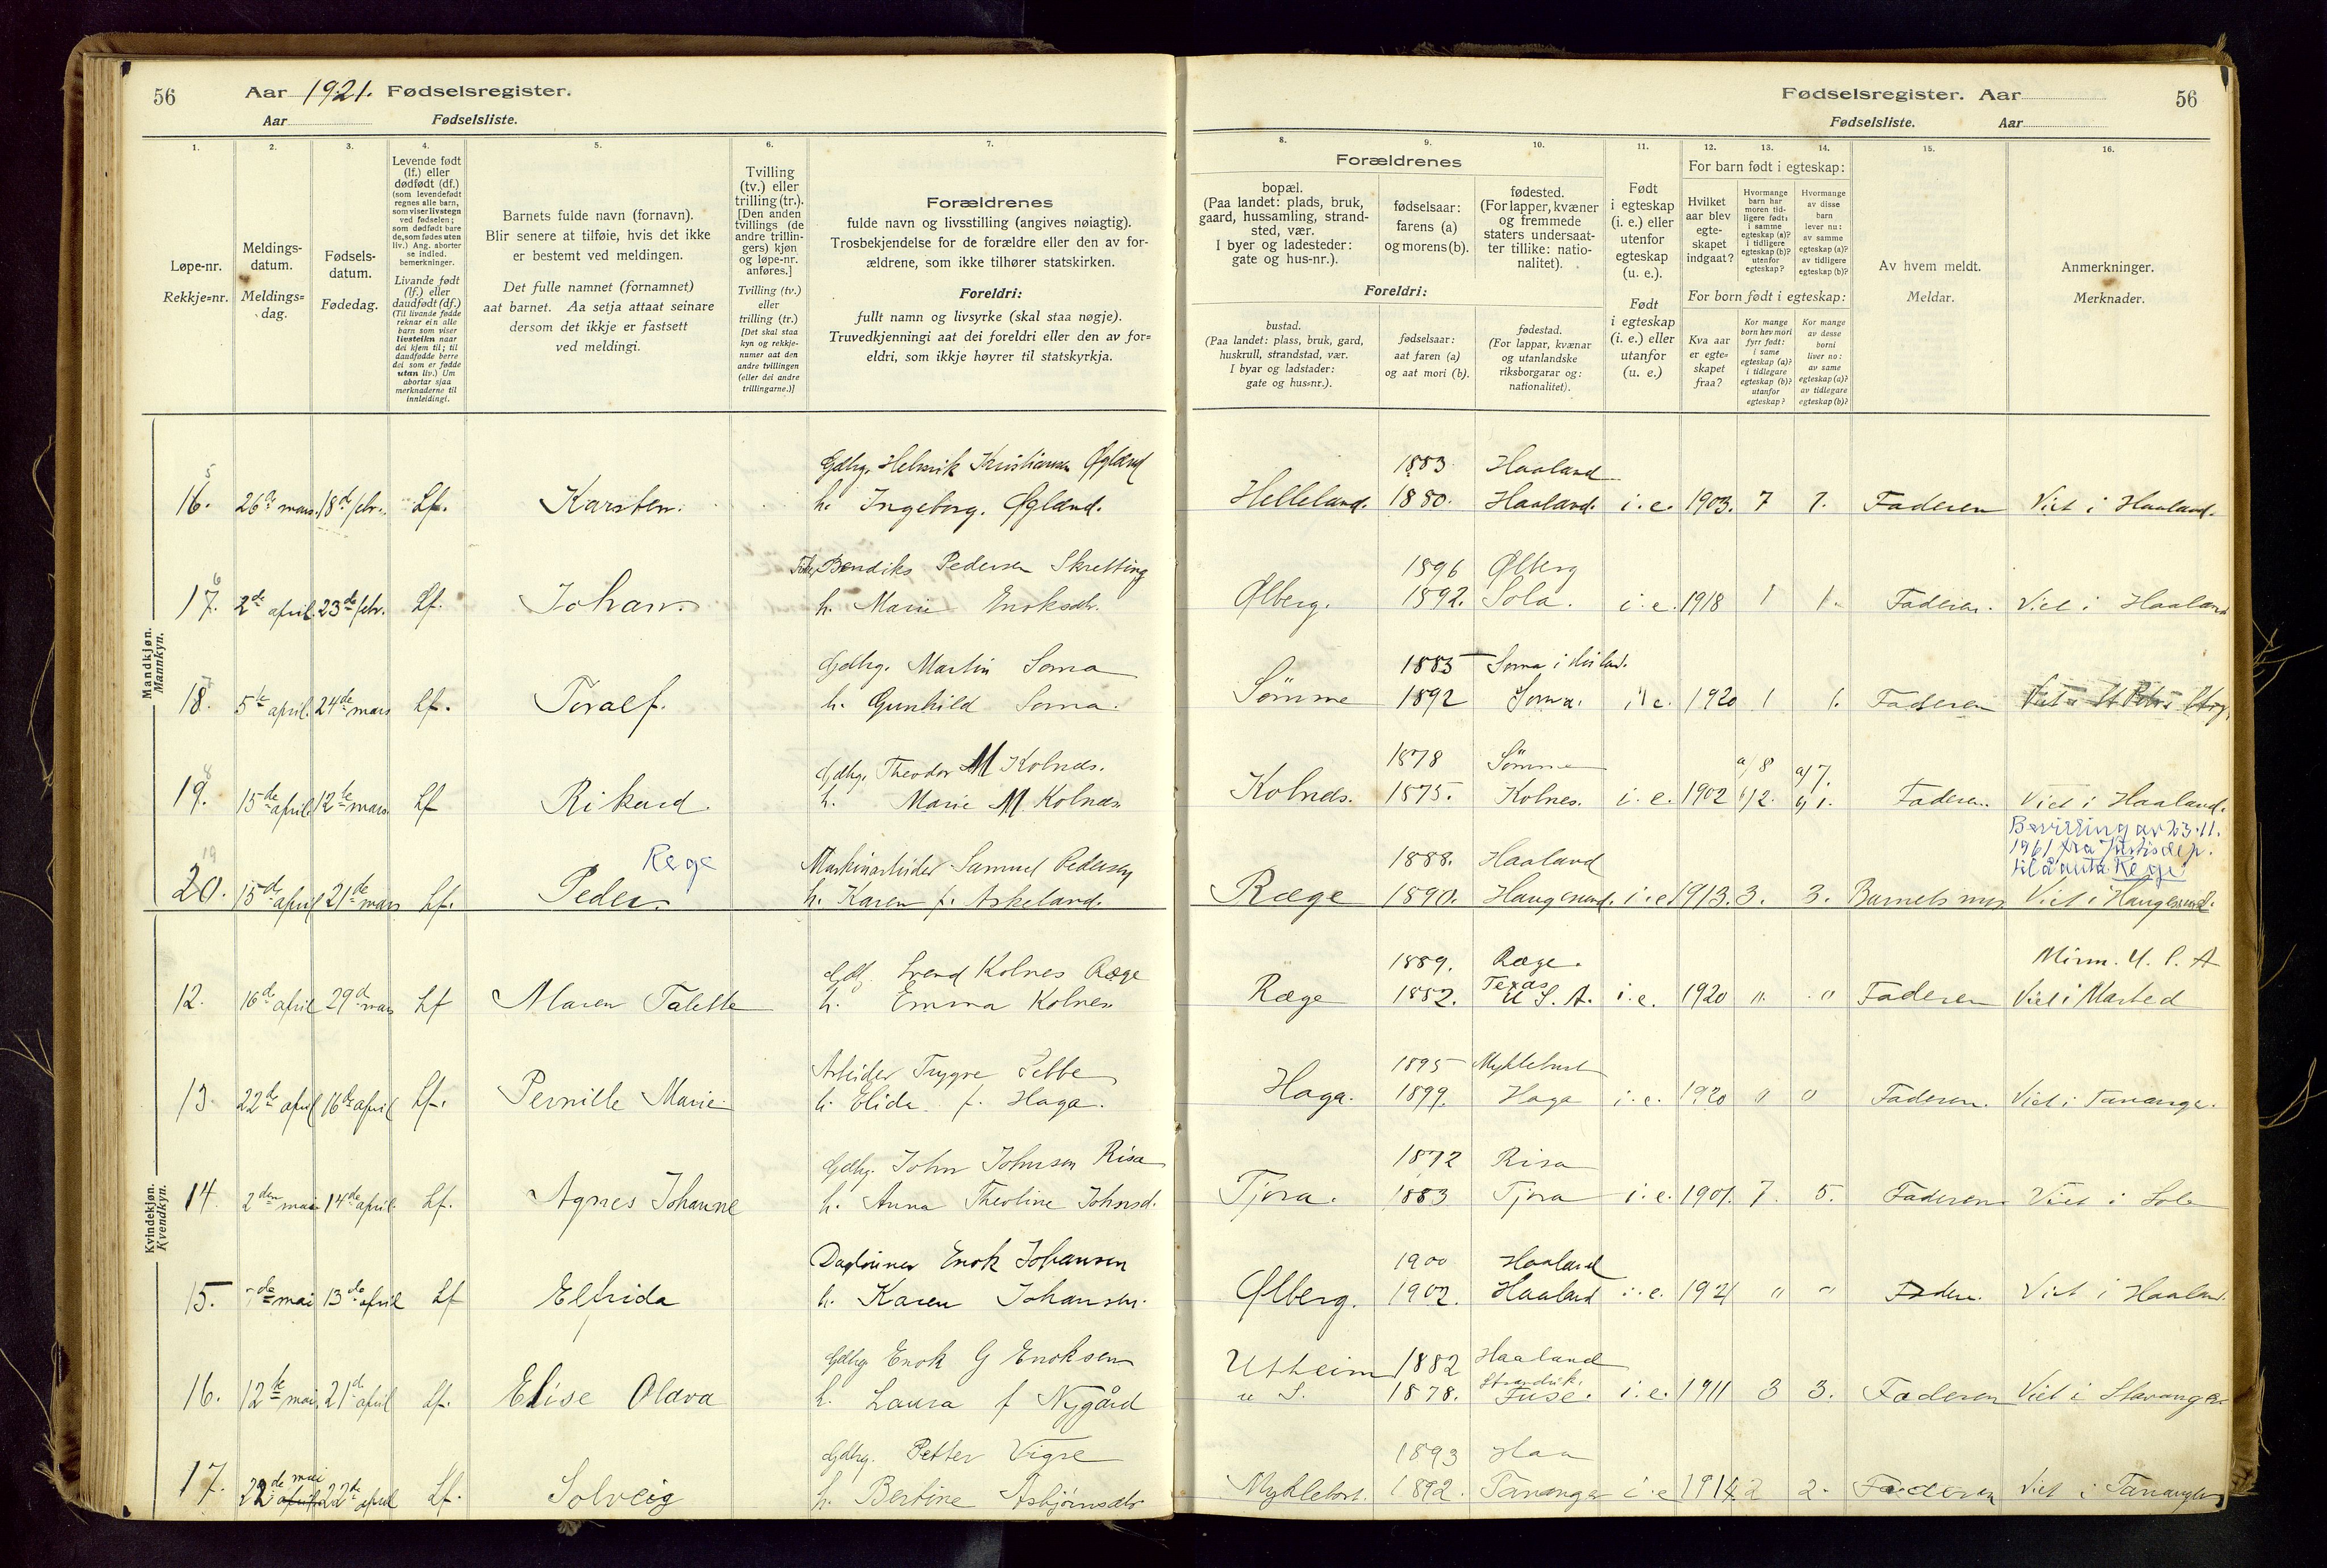 56
Aar 1921. Fødselsregister.
Aar
Fødselsliste.
1.
Løpe-nr.
Rekkje-nr.
2.
Meldings-
datum.
Meldings-
dag.
3.
Fødsels-
datum.
Fødedag.
4.
Levende født
(lf.) eller
dødfødt (df.)
(som levendefødt
regnes alle barn,
som viser livstegn
ved fødselen;
som dødfødt bare
de, som fødes uten
liv.) Ang. aborter
se indled.
bemerkninger.
Livande født
(lf.) eller
daudfødt (df.)
(Til livande fødde
reknar ein alle
barn som viser
livsteikn naar
dei kjem til; til
daudfødde berre
dei som er fødde
utan liv.) Um
abortar sjaa
merknaderne til
innleidingi.
5.
Barnets fulde navn (fornavn).
Blir senere at tilføie, hvis det ikke
er bestemt ved meldingen.
Det fulle namnet (fornamnet)
aat barnet. Aa setja attaat seinare
dersom det ikkje er fastsett
ved meldingi.
6.
Tvilling
(tv.) eller
trilling (tr.).
[Den anden
tvillings (de
andre trillin-
gers) kjøn
og løpe-nr.
anføres.]
Tvilling (tv.)
eller
trilling (tr.)
[Det skal staa
kyn og rekkje-
numer aat den
andre tvillingen
(eller dei andre
trillingarne.)]
7.
Forældrenes
fulde navn og livsstilling (angives nøiagtig).
Trosbekjendelse for de forældre eller den av for-
ældrene, som ikke tilhører statskirken.
Foreldri:
fullt namn og livsyrke (skal staa nøgje).
Truvedkjenningi aat dei foreldri eller den av for-
eldri, som ikkje høyrer til statskyrkja.
Fødselsregister. Aar
56
Fødselsliste.
Aar
8.
Forældrenes
bopæl.
(Paa landet: plads, bruk,
gaard, hussamling, strand-
sted, vær.
I byer og ladesteder:
gate og hus-nr.).
Foreldri:
bustad.
(Paa landet: plass, bruk, gard,
huskrull, strandstad, vær.
I byar og ladstader:
gate og hus-nr.).
9.
fødselsaar:
farens (a)
og morens (b).
fødselsaar:
aat faren (a)
og aat mori (b).
10.
fødested.
(For lapper, kvæner
og fremmede
staters undersaat-
ter tillike: natio-
nalitet).
fødestad.
(For lappar, kvænar
og utanlandske
riksborgarar og:
nationalitet).
11.
Født
i egteskap
(i. e.) eller
utenfor
egteskap
(u. e.).
Født
i egteskap
(i. e.) eller
utanfor
(u. e.)
12.
13.
14.
For barn født i egteskap:
Hvilket
aar blev
egte-
skapet
indgaat?
Hvormange
barn har
moren tid-
ligere født:
i samme
egteskap (a)?
i tidligere
egteskap (b)?
utenfor
egteskap?
Hvormange
av disse
barn
lever nu:
av samme
egteskap (a)?
av tidligere
egteskap (b)?
For born født i egteskap:
Kva aar
er egte-
skapet
fraa?
Kor mange
born hev mori
fyrr født:
i same
egteskap (a)?
i tidlegare
egteskap (b)?
utanfor
egteskap?
Kor mange
av desse
borni
liver no:
av same
egteskap (a)?
av tidlegare
egteskap (b)?
15.
Av hvem meldt.
Meldar.
16.
Anmerkninger.
Merknader.
Mandkjøn.
Mannkyn.
Gdbr. Henrik Kristiansen Øgland 1883 Haaland
16. 26de mars. 18de febr. Lf. Karsten. h. Ingeborg. Øgland. Helleland. 1880. Haaland. i. e. 1903. 7 7. Faderen Viet i Haaland.
Bendiks Pedersen Skretting 1896 Ølberg
17. 2de april. 23de febr. Lf. Johan. h. Marie Enoksdtr. Ølberg. 1892. Sola. i. e. 1918 1 1. Faderen. Viet i Haaland
Gdbr. Martin Soma 1883 Soma i
18. 5te april. 24de mars Lf. Toralf. h. Gunhild Soma. Sømme 1892 Soma. i. e. 1920 1 1. Faderen
Gdbr. Theodor M Kolnes. 1878 Sømme a/ 8 a/ 7.
19. 15de april 12te mars. Lf Rikard. h. Marie M. Kolnes. Kolnes. 1875. Kolnes. i. e. 1902 b/ 2. b/ 1. Faderen. Viet i Haaland.
Bevilling av 23.11.
1961 fra Justisdep.
til å anta Rege
Rege Maskinarbeider Samuel Pedersen 1888. Haaland
20. 15de april 21de mars Lf. Peder. h. Karen f. Askeland. Ræge 1890. Haugesund. i. e. 1913. 3. 3. Barnets mor Viet i Haugesund.
Kvindekjøn.
Kvendkyn.
Svend Kolnes Ræge 1889. Ræge. U. S. A
12. 16de april 29de mars Lf Maren Talette h. Emma Kolnes Ræge 1882. Texas U. S. A. i. e. 1920 " " Faderen Viet i
Arbeider Trygve Tebbe 1895 Myklebust
13. 22de april 16de april Lf. Pernille Marie h. Elida f. Haga. Haga. 1899. Haga i. e. 1920 0 0 Faderen. Viet i Tananger.
Gdbr. John Johnsen Risa 1872 Risa
14. 2den mai 14de april. Lf. Agnes Johanne h. Anna Theoline Johnsd. Tjora. 1883 Tjora i. e. 1901. 7. 5. Faderen Viet i Sola
Dagløner Enok Johansen 1900 Haaland
15. mai 13de april Lf Elfrida h. Karen Johansen. Ølberg. 1902. Haaland i. e. 1921 " " Faderen Viet i Haaland.
Gdbr. Enok G Enoksen Utheim 1882 Haaland
16. 12te mai. 21de april Lf. Elise Olava h. Laura f Nygård 1878. Strandvik. Fuse. i. e. 1911 3 3. Faderen Viet i Stavanger
Gdbr. Petter Vigre 1893 Haa
17. 22de mai april 22de april Lf. Solveig h. Bertine Asbjørnsdtr Myklebust. 1892. Tananger i. e 1914 2 2. Faderen Viet i Tananger